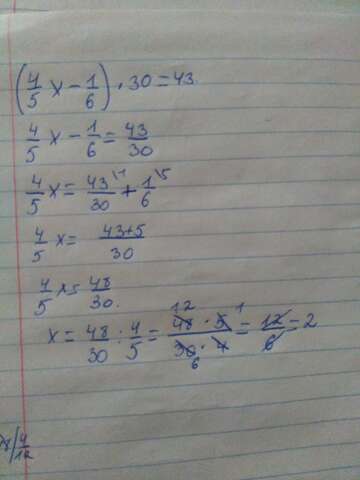 (4/5 x − 1/6) · 30 = 43
4/5 x − 1/6 = 43/30
4/5 x = 43/30 \1 + 1/6 \5
4/5 x = 43+5/30
4/5 x = 48/30.
x = 48/30 : 4/5 = 48 12 · 5 1 / 30 6 · 4 = 12/6 = 2
4/12